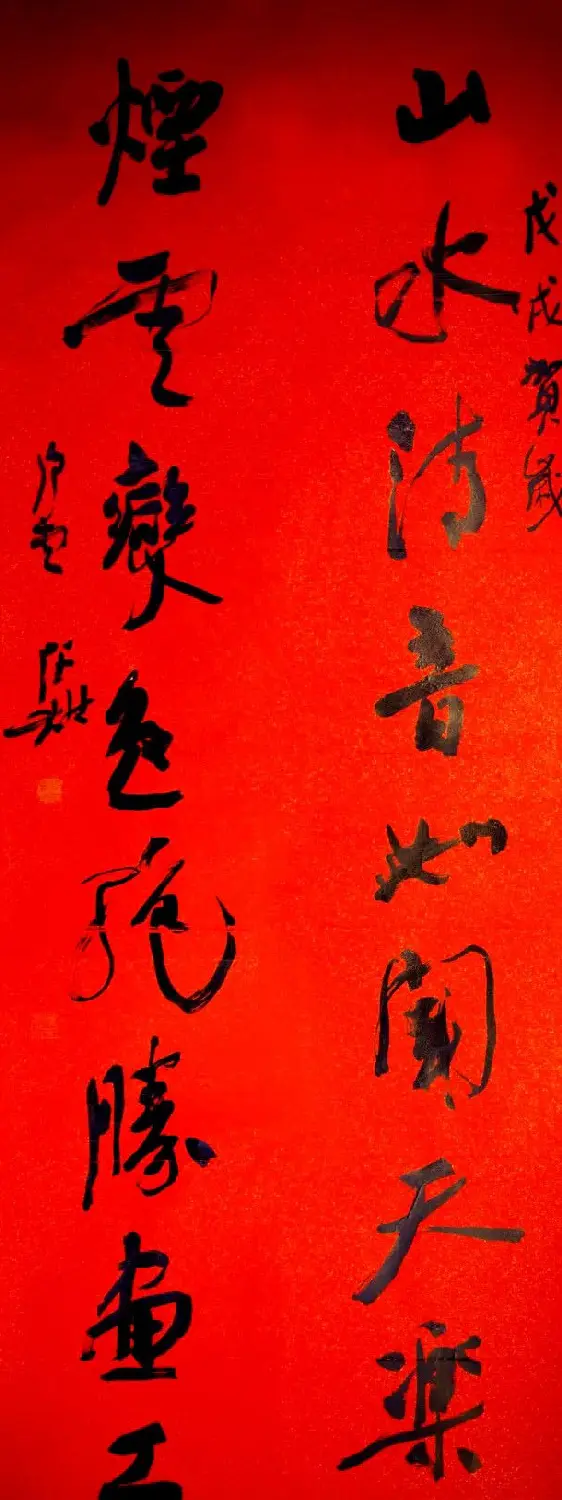 戊戌賀歲
山水清音如聞天樂
煙雲變色絕勝畫工